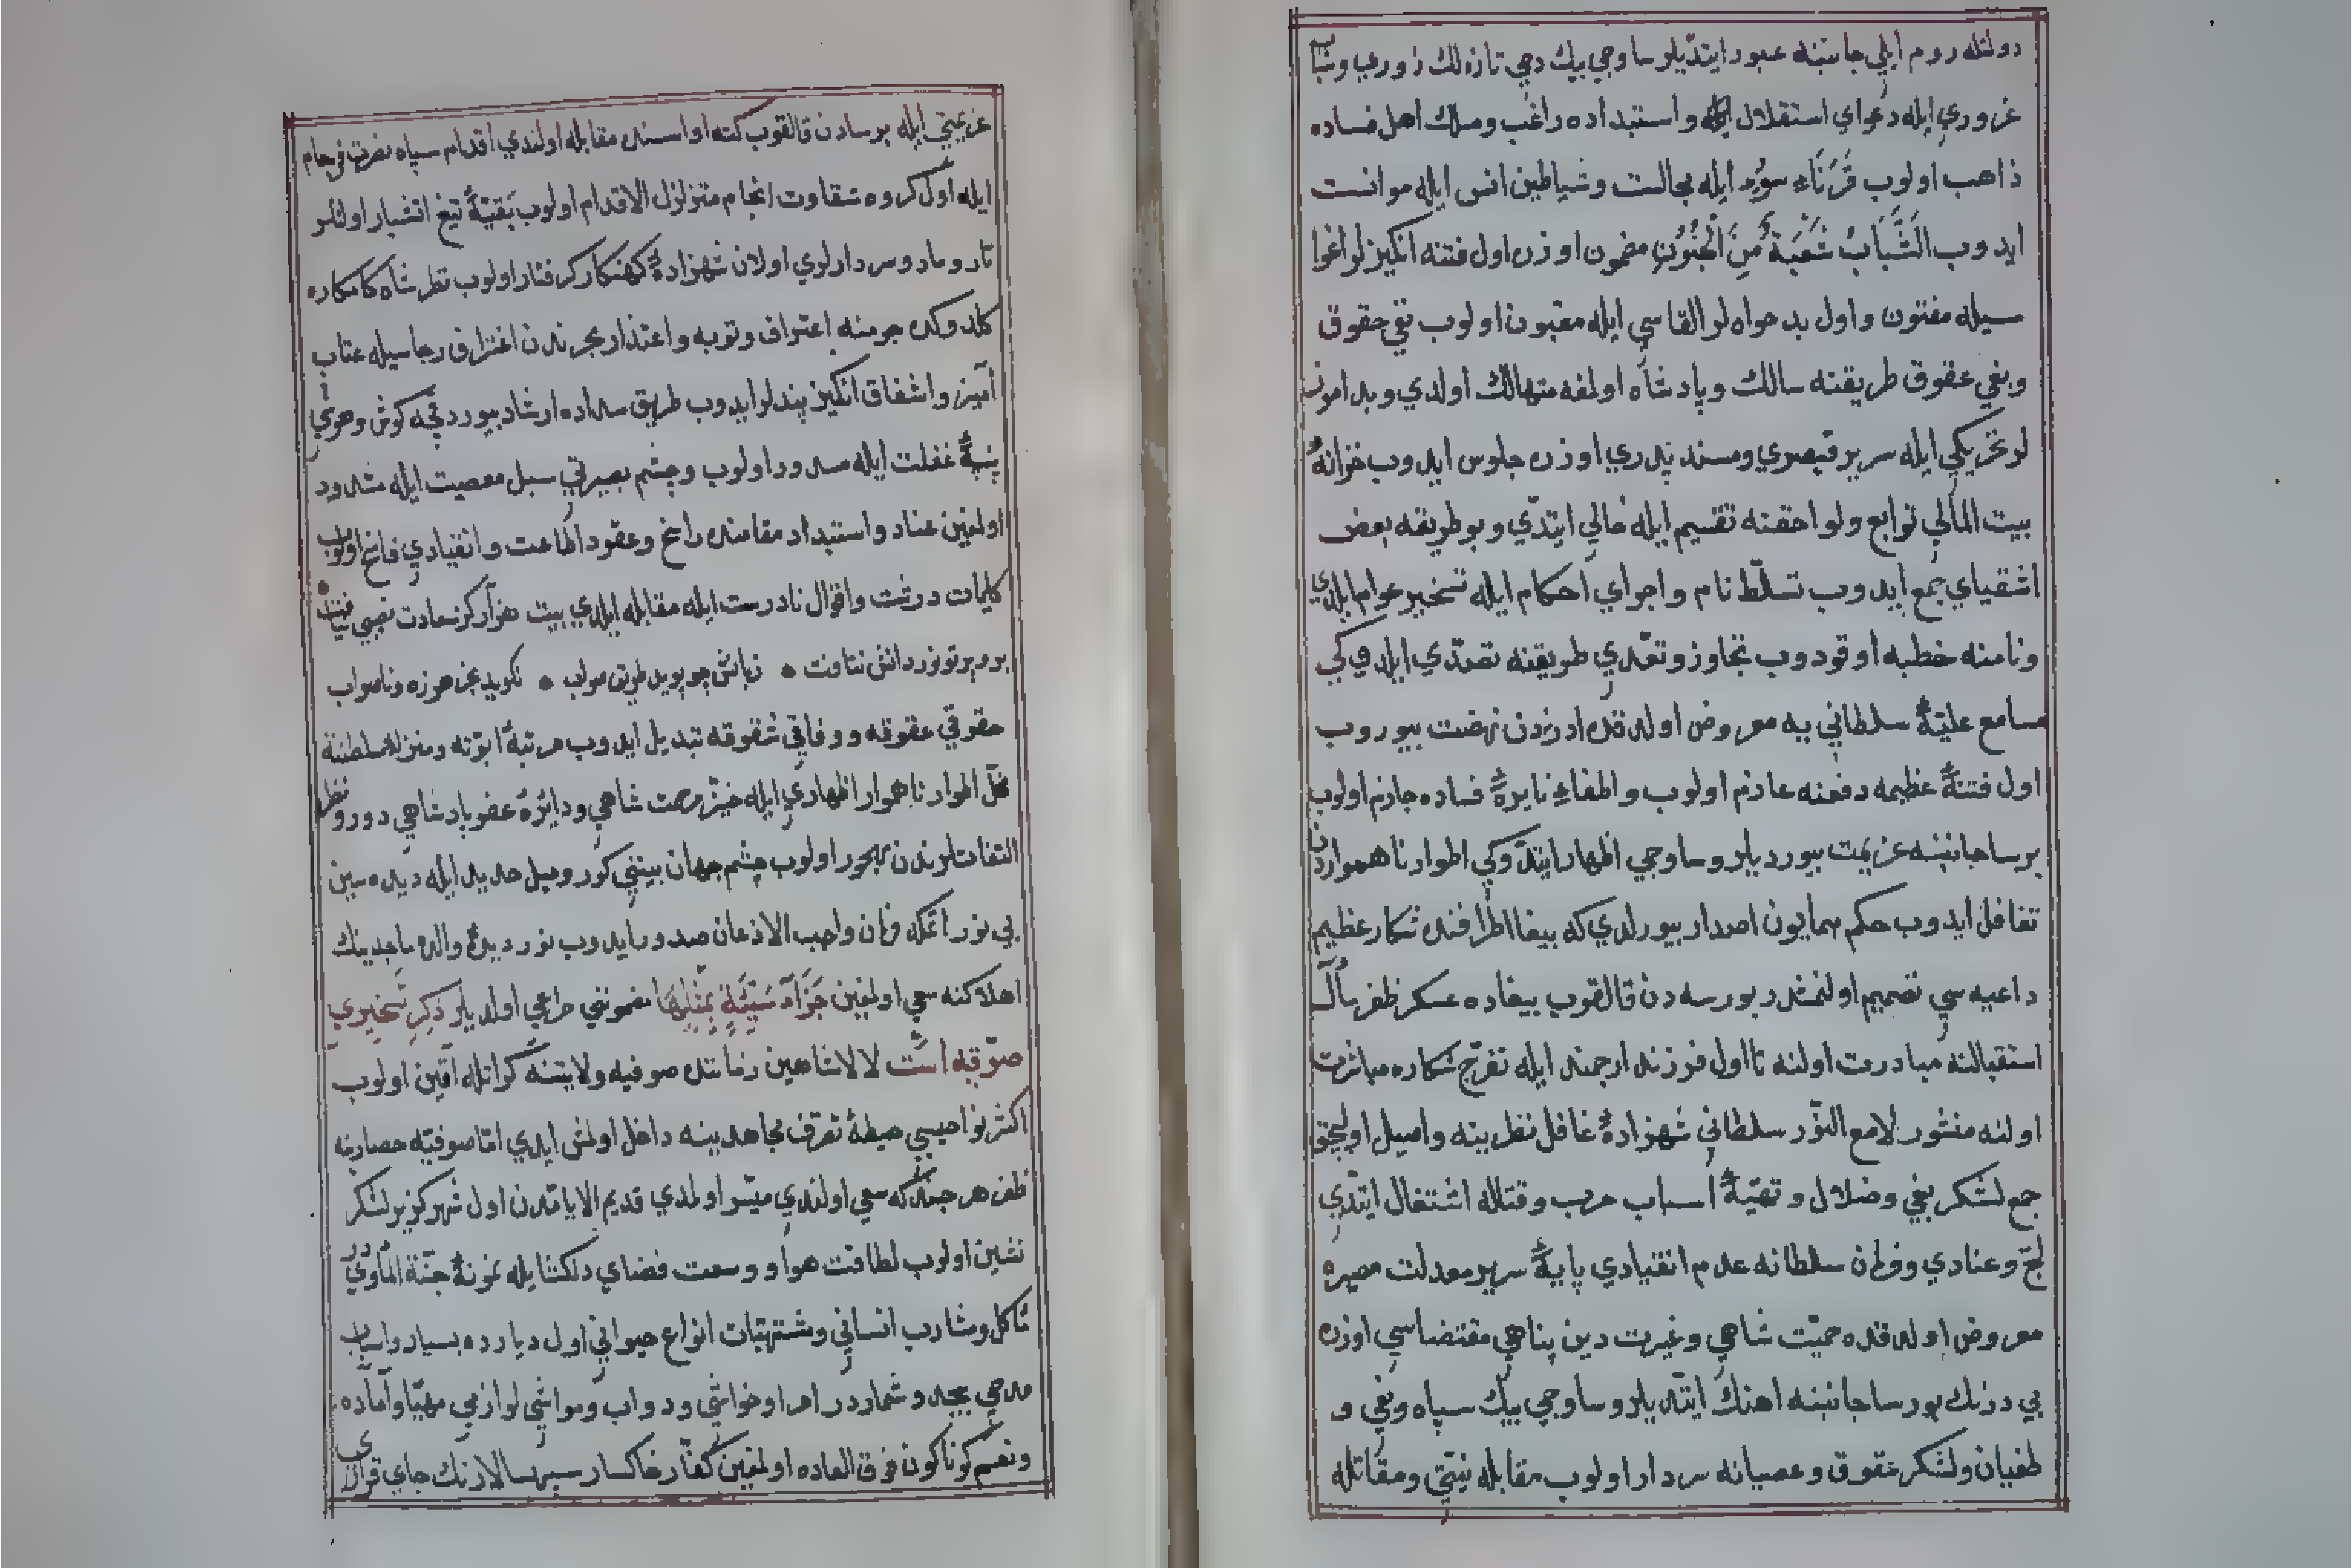 دولتله روم ايلي جانبنه عبور ايتديلر ساوجي بيك دخي تازه لك زوري وشباب
غروري ايله دعواي استقلال ايله واستبداده راغب ومسلك اهل فساده
ذاهب اولوب قرناء سوء ايله مجالست وشياطين انس ايله موانست
ايدوب الشَّبَابُ شُعْبَةٌ مِنَ الْجُنُونِ مضمون اوزره اول فتنه انكيزلر اغوا
سيله مفتون واول بد خواه لر القاسي ايله مغبون اولوب نفي حقوق
وبغي عقوق طريقنه سالك وپادشاه اولمغه متهالك اولدي وبد اموز
لر تحريكي ايله سرير قيصري ومسند پدري اوزره جلوس ايدوب خزانهٔ
بيت المالي توابع ولواحقنه تقسيم ايله خالي ايتدي وبو طريقه بعض
اشقياي جمع ايدوب تسلّط نام واجراي احكام ايله تسخير عوام ايلدي
ونامنه خطبه اوقودوب تجاوز وتعدي طريقنه تصدّي ايلدوكي
مسامع عليّهٔ سلطاني يه معروض اولدقده ادرنه دن نهضت بيوروب
اول فتنهٔ عظيمه دفعنه عازم اولوب واطفاء نايرهٔ فساده جازم اولوب
برسا جانبنه عزيمت بيورديلر وساوجي اظهار ايتدوكي اطوار ناهمواردن
تغافل ايدوب حكم همايون اصدار بيورلدي كه بيغا اطرافنده شكار عظيم
داعيه سي تصميم اولنمشدر بورسه دن قالقوب بيغاده عسكر ظفر مآل
استقبالنه مبادرت اولنه تا اول فرزند ارجمند ايله تفرّج شكاره مباشرت
اولنه منشور لامع النّور سلطاني شهزادهٔ غافل نظرينه واصل اوليجق
جمع لشكر بغي وضلال وتهيّهٔ اسباب حرب وقتاله اشتغال ايتدي
لجّ وعنادي وفرمان سلطانه عدم انقيادي پايهٔ سرير معدلت مصيره
معروض اولدقده حميّت شاهي وغيرت دين پناهي مقتضاسي اوزره
بي درنك بورسا جانبنه اهنك ايتديلر وساوجي بيك سپاه وبغي و
طغيان ولشكر عقوق وعصيانه سردار اولوب مقابله نيتي ومقاتله
عزيمتي ايله برسادن قالقوب كته اواسنده مقابله اولندي اقدام سپاه نصرت فرجام
ايله اول كروه شقاوت انجام متزلزل الاقدام اولوب بقيّهٔ تيغ اتشبار اولنلر
تار ومار وسردارلري اولان شهزادهٔ كهنكار كرفتار اولوب نظر شاه كامكاره
كلدوكده جرمنه اعتراف وتوبه واعتذار بحرندن اغتراف رجاسيله عتاب
آميز واشفاق انكيز پندلر ايدوب طريق سداده ارشاد بيوردقچه كوش وهوشي
پنبهٔ غفلت ايله مسدود اولوب وچشم بصيرتي سبل معصيت ايله مشدود
اولمغين عناد واستبداد مقامنده راسخ وعقود اطاعت وانقيادي فاسخ اولوب
كلمات درشت واقوال نادرست ايله مقابله ايلدي بيت هرآن كز سعادت نصيبي نيافت
برو پرتو نور دانش نتافت • زبانش چو پويد طريق صواب • نكويد بجز هرزه وناصواب
حقوقي عقوقه ووفاقي شقوقه تبديل ايدوب مرتبهٔ ابوّته ومنزلهٔ سلطنته
مخلّ اطوار ناهموار اظهاري ايله حيّز مرحمت شاهي ودائرهٔ عفو پادشاهي دور ونظر
التفاتلرندن مهجور اولوب چشم جهان بينني كور وميل حديد ايله ديده سين
بي نور اتمكه فرمان واجب الاذعان صدور ايدوب نور ديدهٔ والده ماجدينك
اهلاكنه سعي اولمغين جَزَاءُ سَيِّئَةٍ بِمِثْلِهَا مضمونني مراعي اولديلر ذكر تسخيري
صوفيه است لالا شاهين زماننده صوفيه ولايتنه كراتله اقين اولوب
اكثر نواحيسي حيطهٔ تصرّف مجاهدينه داخل اولمش ايدي امّا صوفيّه حصارينه
ظفر هر چند كه سعي اولندي ميسّر اولمدي قديم الايامدن اول شهر كزير لشكر
نشين اولوب لطافت هوا و وسعت فضاي دلكشا ايله نمونهٔ جنّة المأوي در
مآكل ومشارب انساني ومشتهيّات انواع حيواني اول ديارده بسيار واسباب
مدحي بيحد وشمار در امرا وخواشي ودواب ومواشي لوازمي مهيّا وآماده
ونعم كوناكون فوق العاده اولمغين كفّار خاكسار سپهسالارنك جاي قراري